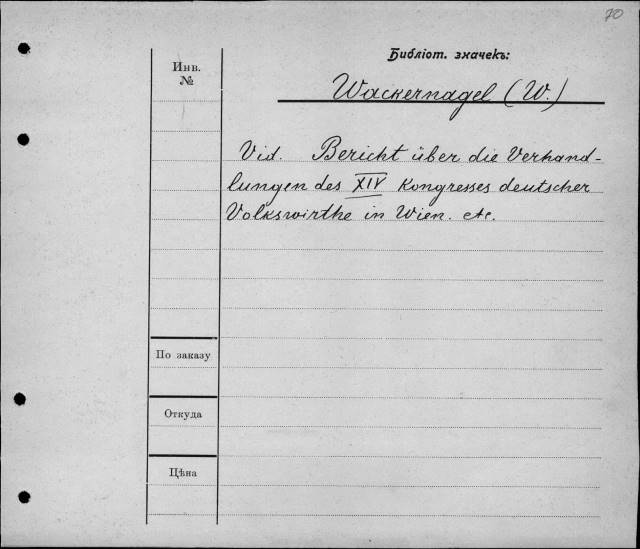 70
Библіот. значекъ:
Инв.
№
Wackernagel (W.)
Vid. Bericht über die Verhand-
lungen des XIV Kongresses deutscher
Volkswirthe in Wien. etc.
По заказу
Откуда
Цѣна